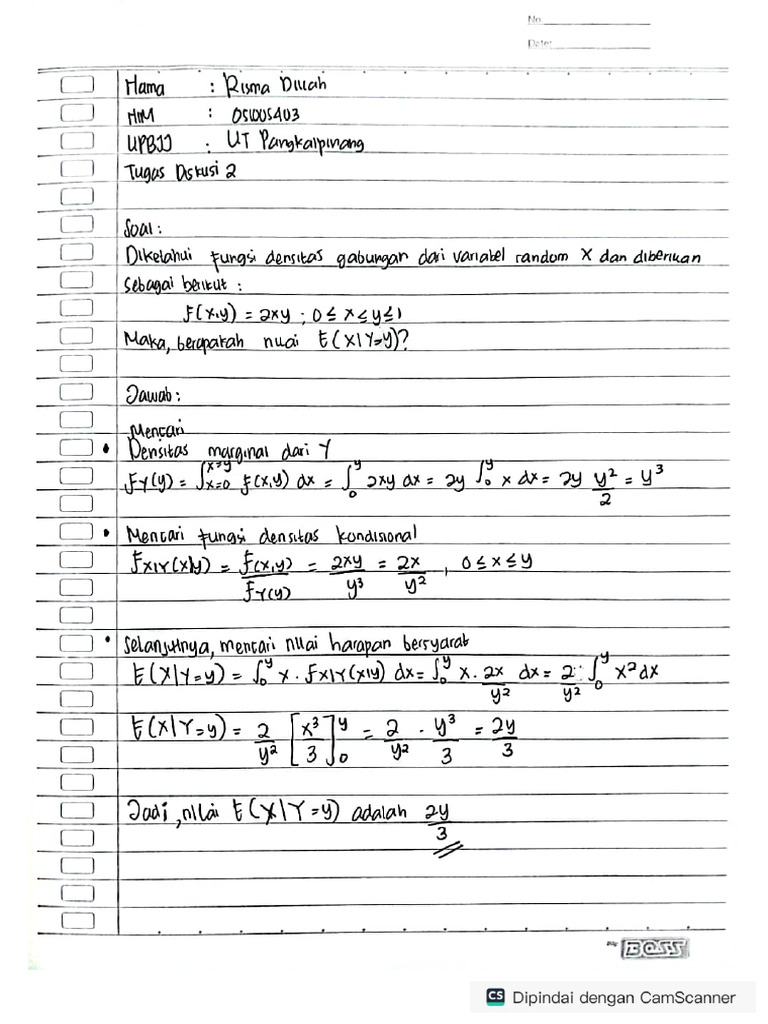 No.
Date:
Nama : Risma Diwah
NIM : 051005403
UPBJJ : UT Pangkalpinang
Tugas Diskusi 2
Soal :
Diketahui fungsi densitas gabungan dari variabel random X dan diberikan
Sebagai berikut :
f(x,y) = 2xy ; 0 ≤ x ≤ y ≤ 1
Maka, berapakah nilai E(X|Y=y)?
Jawab :
Mencari
• Densitas marginal dari Y
fY(y) = ∫_{x=0}^{x=y} f(x,y) dx = ∫_0^y 2xy dx = 2y ∫_0^y x dx = 2y y²/2 = y³
• Mencari fungsi densitas kondisional
fX|Y(x|y) = f(x,y)/fY(y) = 2xy/y³ = 2x/y² , 0 ≤ x ≤ y
• Selanjutnya, mencari nilai harapan bersyarat
E(X|Y=y) = ∫_0^y x . fX|Y(x|y) dx = ∫_0^y x . 2x/y² dx = 2/y² ∫_0^y x² dx
E(X|Y=y) = 2/y² [x³/3]_0^y = 2/y² . y³/3 = 2y/3
Jadi, nilai E(X|Y=y) adalah 2y/3
BOSS
CS Dipindai dengan CamScanner